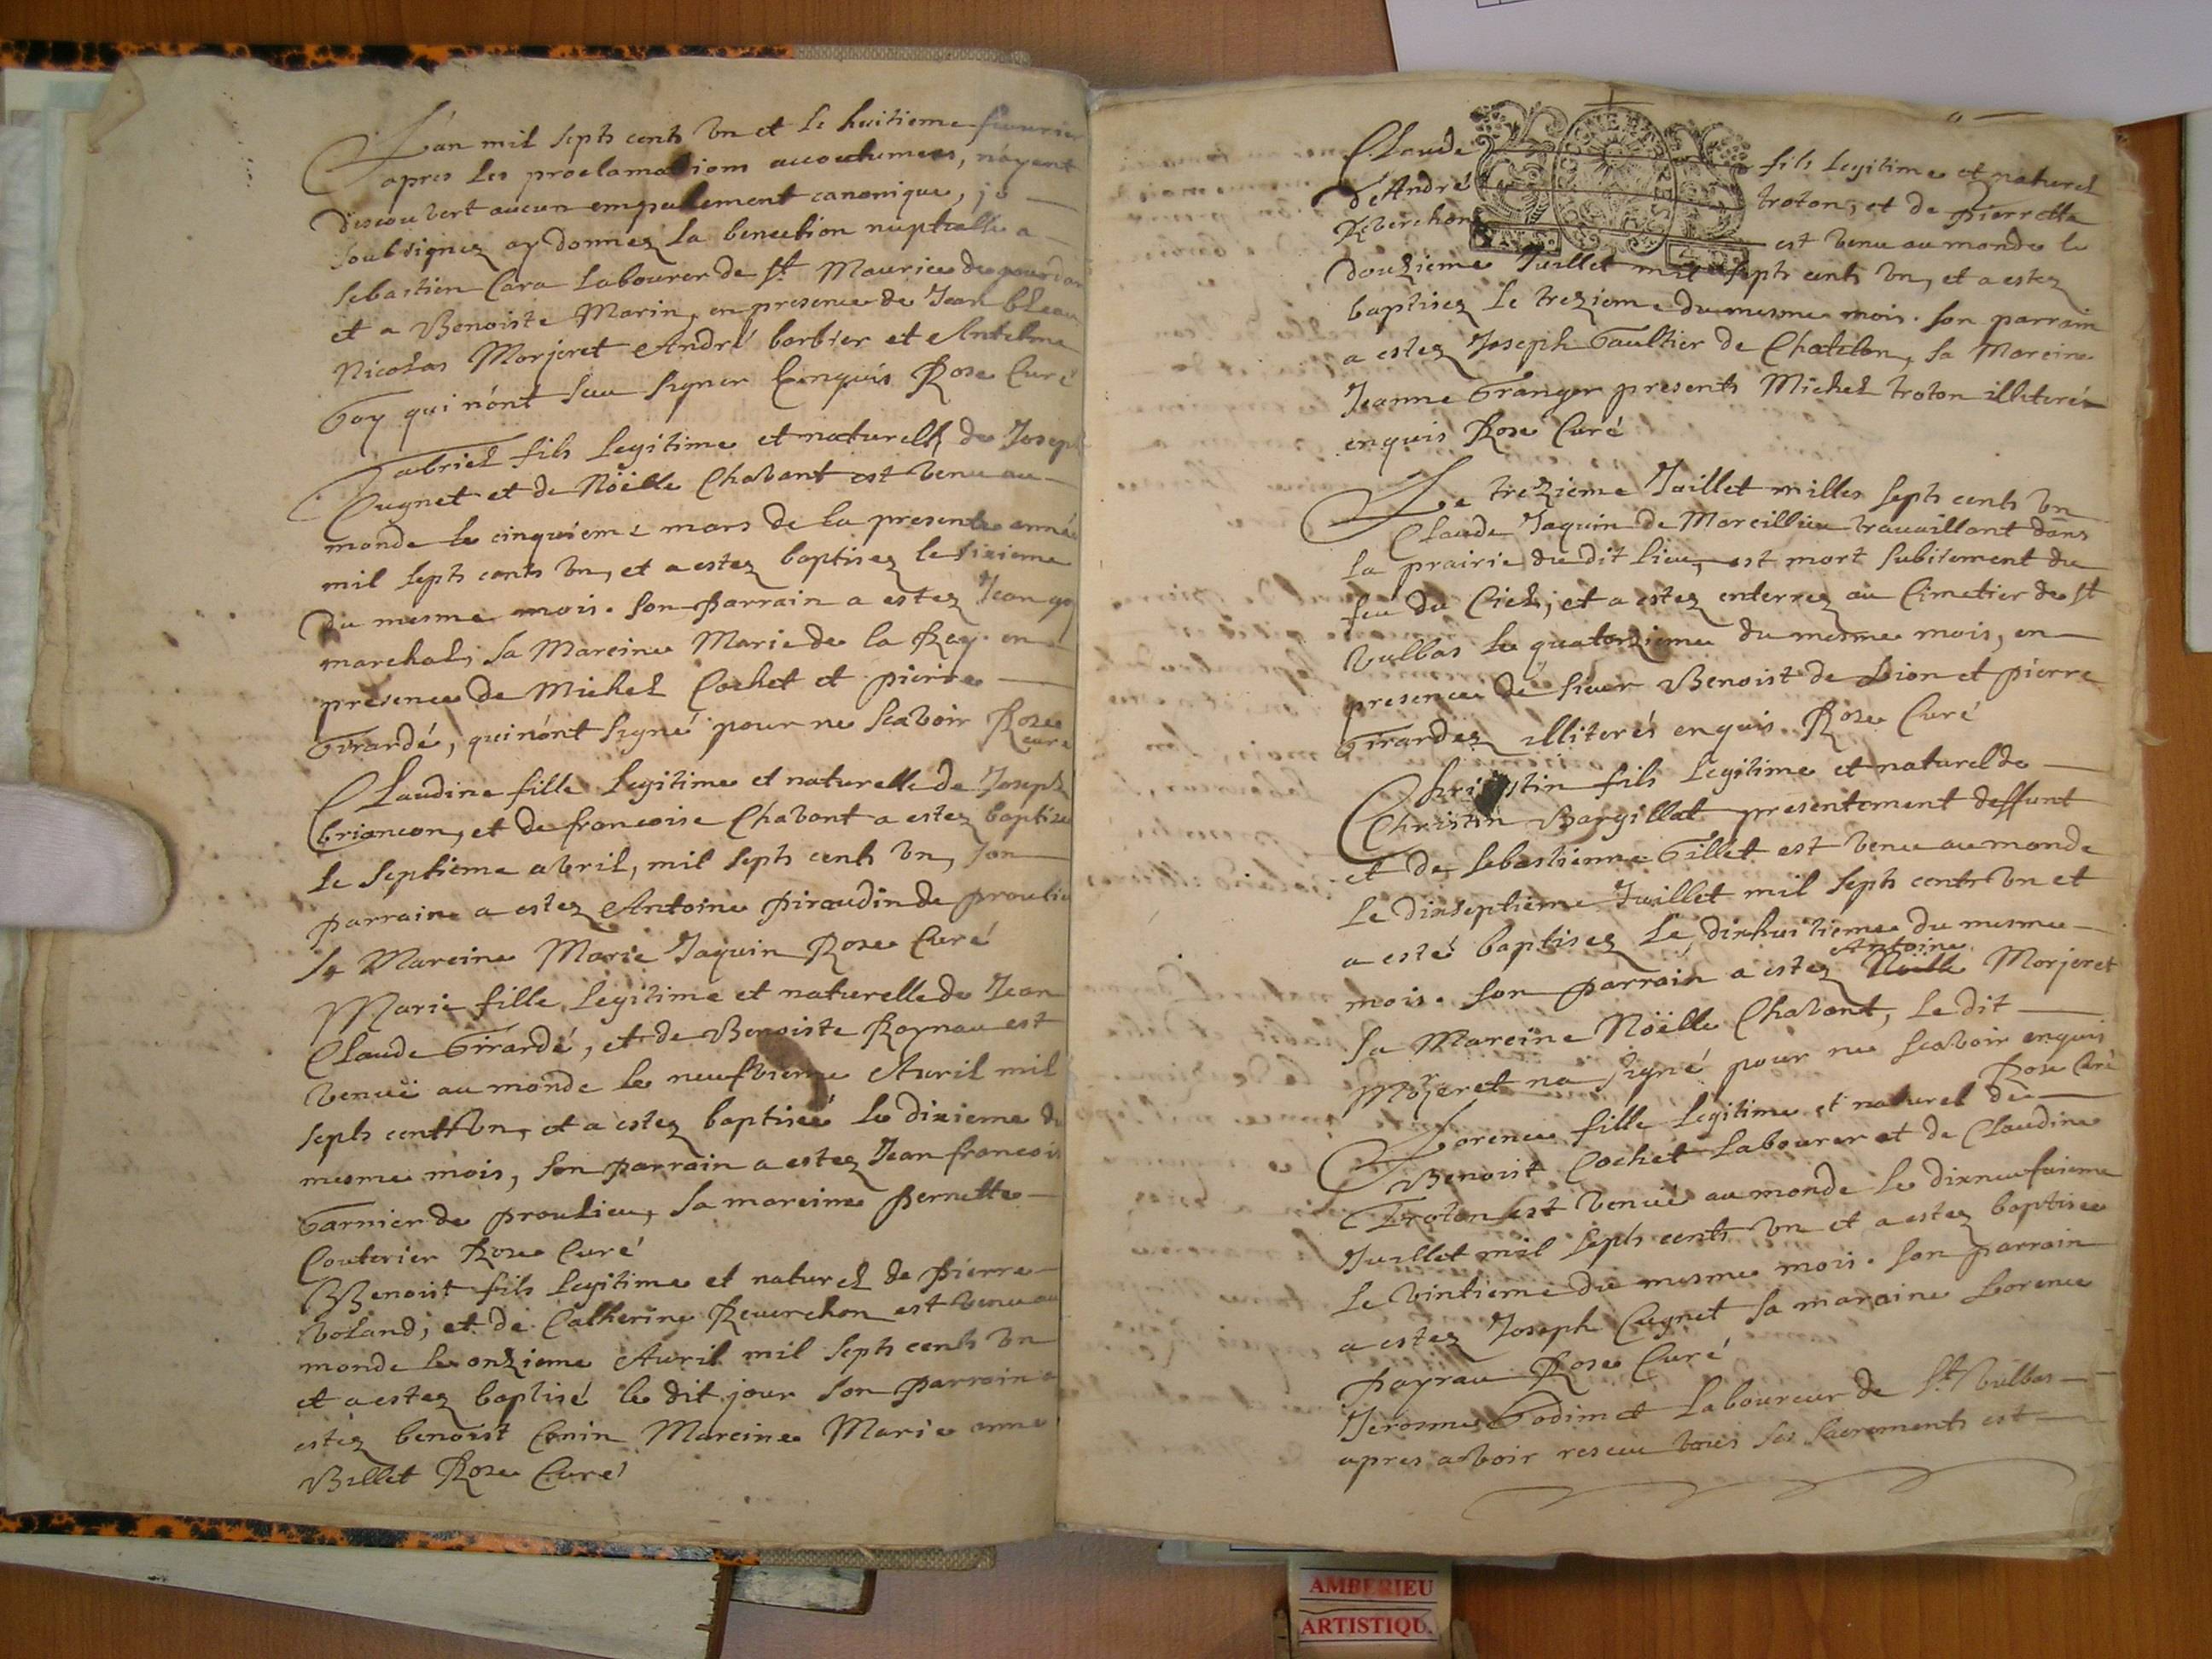 L'an mil septs cents un et le huitieme feuurier
apres les proclamations accoutumees, n'ayant
descouvert aucun empechement canonique, je
soubsignez ay donnez la benection nuptialle a
Sebastien Cara Labourer de st Maurice de gourdan
et a Benoiste Marin, en presence de Jean
Nicolas Morjeret André barbier et Antelme
Goy qui n'ont sceu signer Enquis Roze Curé
Gabriel fils legitime et naturelh de Joseph
Cugnet et de Nöelle Chavant est venu au
monde le cinquiéme mars de la presente année
mil septs cents un, et a estez baptisez le sixieme
du mesme mois. son parrain a estez Jean goy
marchal, sa Mareine Marie de la Ray. en
presence de Michel Cochet et pierre
Girardé, qui n'ont signé pour ne scavoir Roze
curé
Claudine fille legitime et naturelle de Joseph
briancon, et de francoise Chavant a estez baptize
le septieme avril, mil septs cents un, son
parraine a estez Antoine piraudin de proulieu
sa Mareine Marie Jaquin Roze Curé
Marie fille legitime et naturelle de Jean
Claude Girardé, et de Benoiste Raynau est
venuë au monde le neufvieme Avril mil
septs cents un, et a estez baptiseé le dixieme du
mesme mois, son parrain a estez Jean francois
Garnier de proulieu, sa mareine Pernette
Couterier Roze Curé
Benoist fils legitime et naturel de pierre
voland, et de Catherine Reuerchon est venu au
monde le onzieme Avril mil septs cents un
et a estez baptisé le dit jour son parrain a
estéz benoist Conin Mareine Marie anne
Billet Roze Curé
Claude fils legitime et naturel
d'André troton, et de Pierrette
Reverchon est venu au monde le
douzieme Juillet mil septs cents un, et a estez
baptisez le trezieme du mesme mois. son parrain
a estez Joseph Gaultier de Chatelon, sa Mareine
Jeanne Granger presents Michel troton illiterés
enquis Roze Curé
Le trezieme Juillet milles septs cents un
Claude Jaquin de Marcillieu travaillant dans
la prairie du dit lieu, est mort subitement du
feu du Ciel, et a estez enterrez au Cimetier de st
Vulbas le quatorzieme du mesme mois, en
presence de sieur Benoist de Dion et pierre
Girardez illiterés enquis Roze Curé
Christin fils legitime et naturel de
Christin Bargillat presentement deffunt
et de Sebastienne Gillet est venu au monde
le dixseptieme Juillet mil septs cents un et
a esté baptisez le dixhuitieme du mesme
Antoine
mois. son parrain a estez Nöelle Morjeret
sa Mareine Nöelle Chavant, le dit
Morjeret na signé pour ne scavoir enquis
Roze Curé
Lorence fille legitime et naturel de
Benoist Cochet Labourer et de Claudine
Troton est venuë au monde le dixneufuieme
Juillet mil septs cents un et a estez baptisee
le vintieme du mesme mois. son parrain
a estez Joseph Cugnet sa maraine Lorence
payrau Roze Curé
Jerosme Godimet Laboureur de st Vulbas
apres avoir resceu tous ses sacrements est
AMBERIEU
ARTISTIQU.